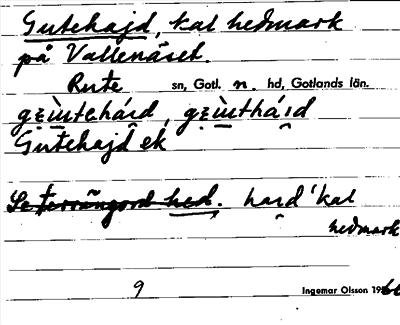 Gutehajd, kal hedmark
på Vallenäset.
Rute sn, Gotl. n. hd, Gotlands län.
Gutehajd ek
Se terrängord hed. haid 'kal
hedmark
9 Ingemar Olsson 19